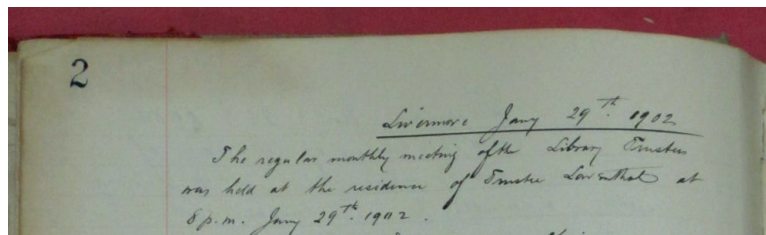 2
Livermore Jany 29th. 1902
The regular monthly meeting of the Library Trustees
was held at the residence of Trustee Lowenthal at
8 p.m. Jany 29th. 1902.